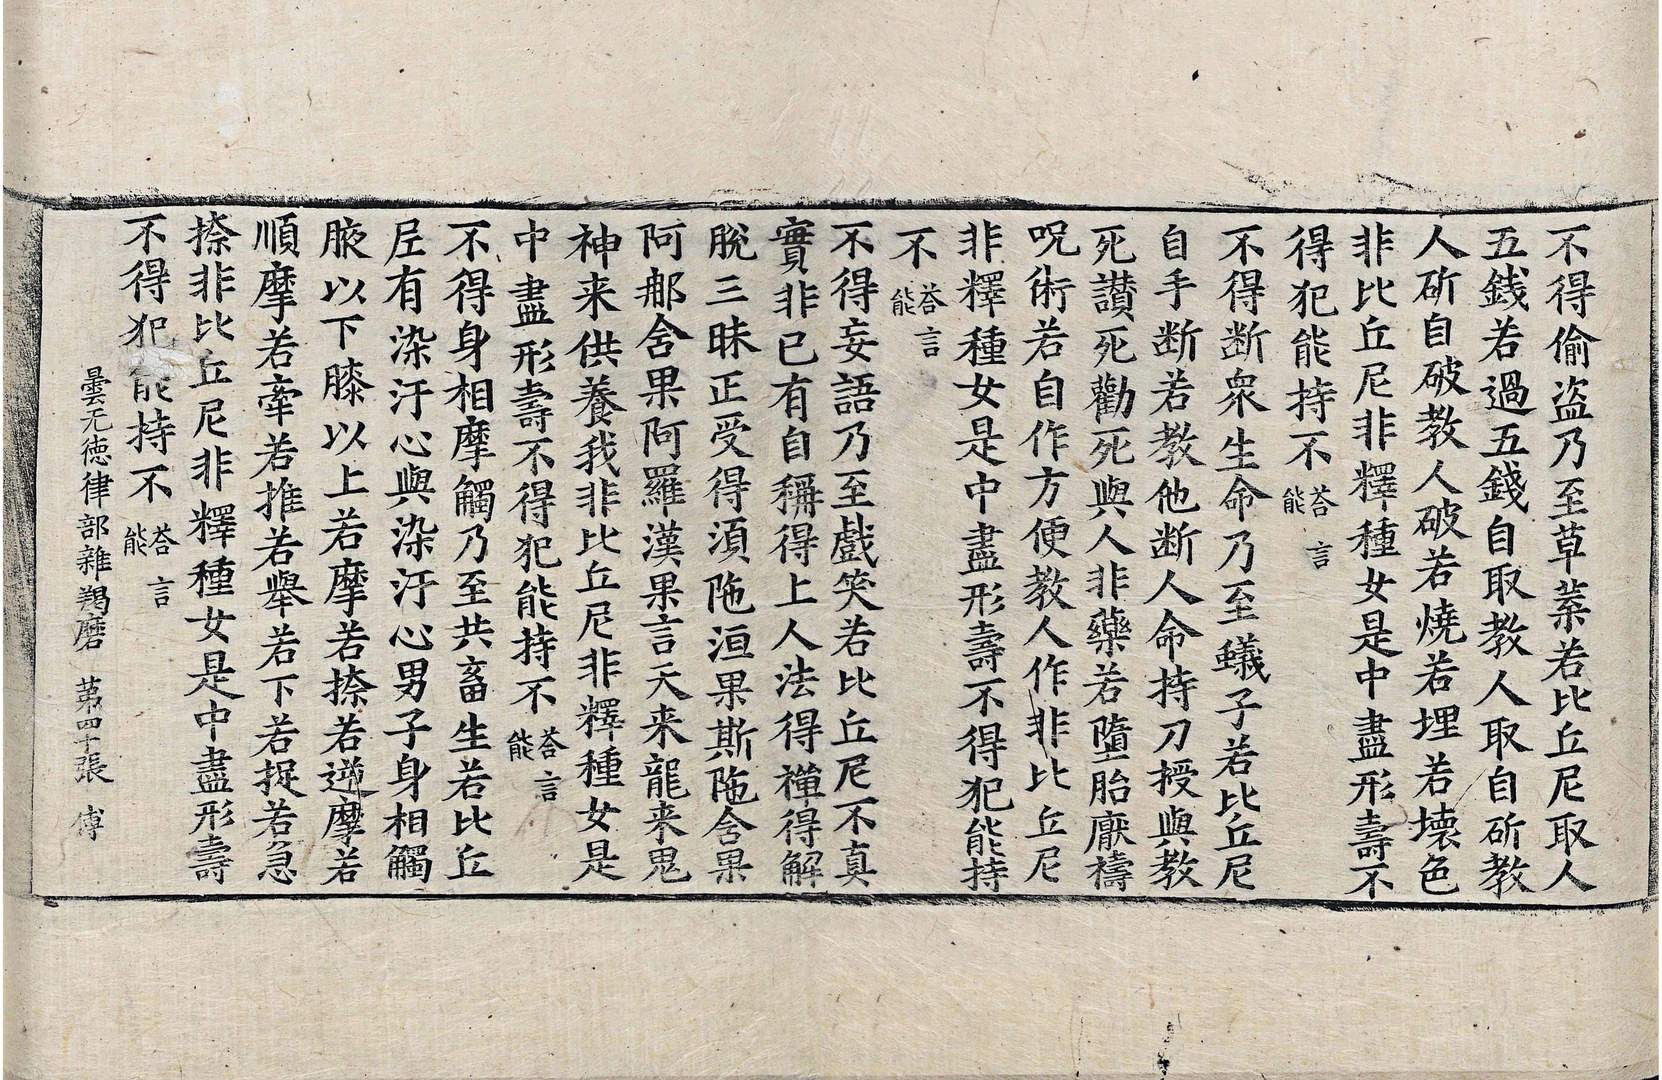 不得偷盗乃至草葉若比丘尼取人
五錢若過五錢自取教人取自斫教
人斫自破教人破若燒若埋若壞色
非比丘尼非釋種女是中盡形壽不
得犯能持不荅言能
不得断衆生命乃至蟻子若比丘尼
自手断若教他断人命持刀授與教
死讃死勸死與人非藥若墮胎厭禱
呪術若自作方便教人作非比丘尼
非釋種女是中盡形壽不得犯能持
不荅言能
不得妄語乃至戲笑若比丘尼不真
實非已有自稱得上人法得禅得解
脫三昧正受得湏陁洹果斯陁含果
阿郍含果阿羅漢果言天来龍来鬼
神来供養我非比丘尼非釋種女是
中盡形壽不得犯能持不荅言能
不得身相摩觸乃至共畜生若比丘
尼有染汙心與染汙心男子身相觸
腋以下膝以上若摩若捺若逆摩若
順摩若牽若推若舉若下若捉若急
捺非比丘尼非釋種女是中盡形壽
不得犯能持不荅言能
曇无德律部雜羯磨 苐四十張 傅